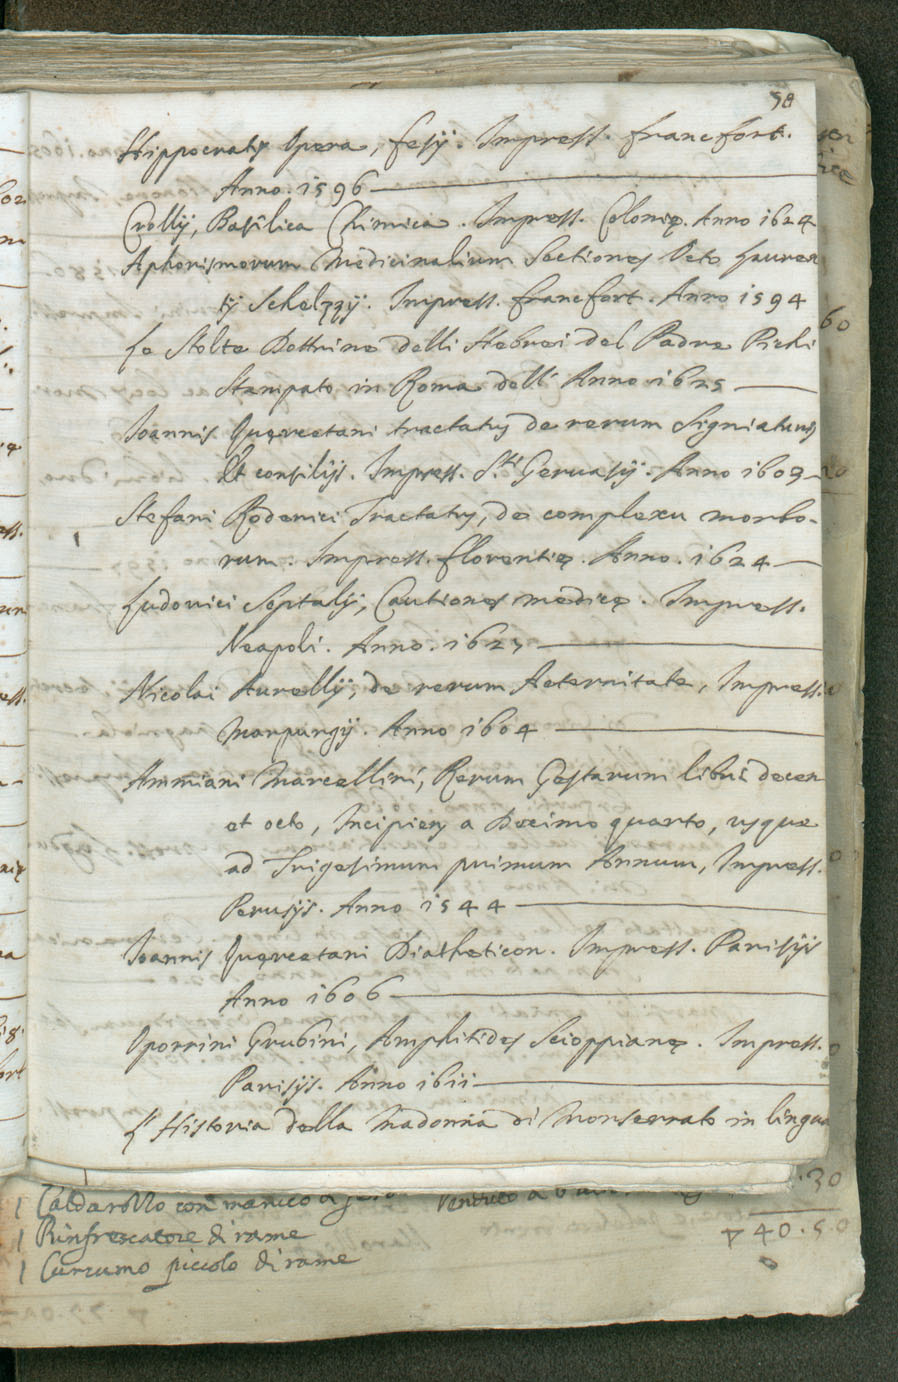 58
Hippocratis Opera, fesij. Impress. francfort.
Anno. 1596
Crollij, Basilica Chimica. Impress. Colonię. Anno 1624
Aphorismorum Medicinalium Sectiones Octo Lauren
tij Scholzzij. Impress. francfort. Anno 1594
Le Stolte Dottrine delli Hebrei del Padre Pichi
Stampato in Roma dell' Anno 1625
Joannis Quercetani tractatus de rerum Signaturis
Et consilijs. Impress. Sti Geruasij. Anno 1609
Stefani Roderici Tractatus, de complexu morbo-
rum. Impress. florentię. Anno. 1624
Ludouici Septalij, Cautiones medicę. Impress.
Neapoli. Anno. 1627
Nicolai Aurellij, de rerum Aeternitate, Impress.
Marpurgij. Anno 1604
Ammiani Marcellini, Rerum Gestarum libri decem
et octo, Incipiens a Decimo quarto, usque
ad Trigesimum primum Annum, Impress.
Perusijs. Anno 1544
Joannis Quercetani Diatheticon. Impress. Parisijs
Anno 1606
Oporini Grubini, Amphitides Scioppianę. Impress.
Parisijs. Anno 1611
L'Historia della Madonna di Monserrato in lingua
1 Caldarozzo con manico
1 Rinfrescatore di rame
1 Curcumo piccolo di rame
60
20
30
40.50